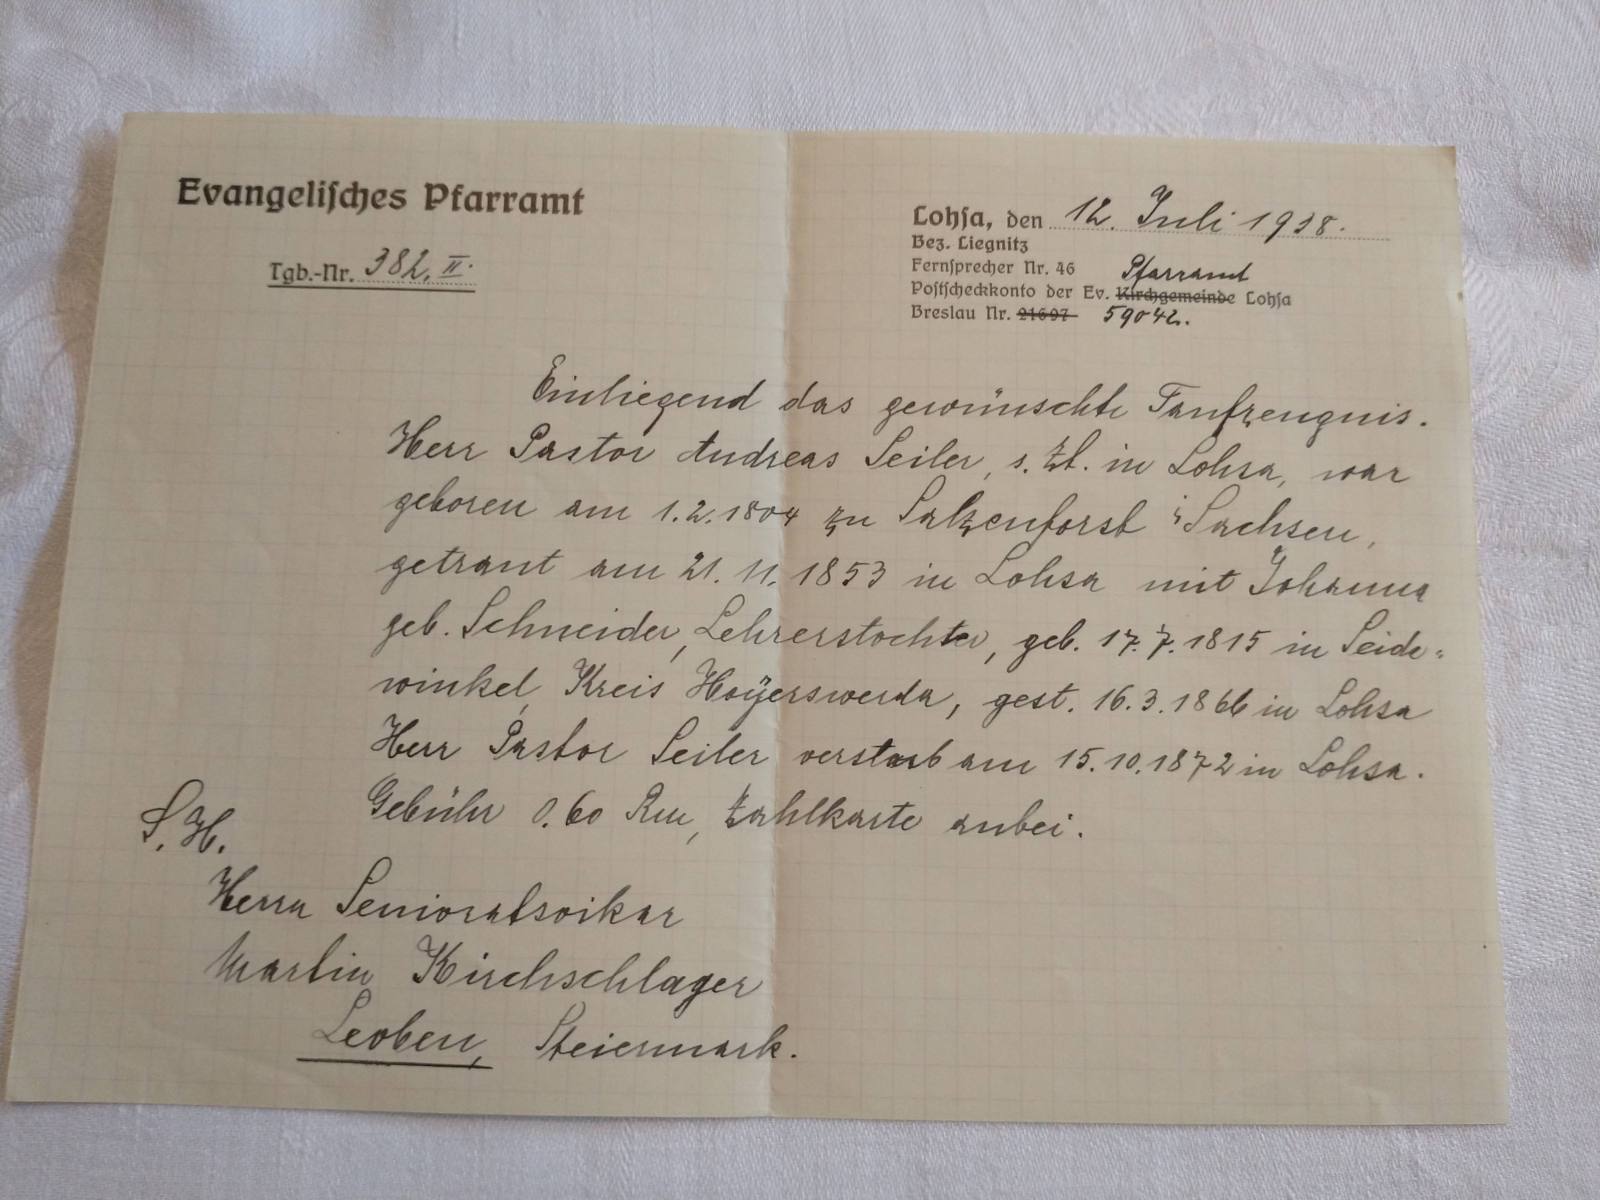 Evangelisches Pfarramt
Tgb.-Nr. 382. II.
Lohsa, den 12. Juli 1938.
Bez. Liegnitz
Fernsprecher Nr. 46
Pfarramt
Postscheckkonto der Ev. Kirchgemeinde Lohsa
Breslau Nr. 21697 59042.
Einliegend das gewünschte Taufzeugnis.
Herr Pastor Andreas Seiler, s. Zt. in Lohsa, war
geboren am 1.2.1804 zu Salzenforst i Sachsen,
getraut am 21. 11. 1853 in Lohsa mit Johanna
geb. Schneider, Lehrerstochter, geb. 17. 7. 1815 in Seide=
winkel, Kreis Hoÿerswerda, gest. 16.3.1866 in Lohsa
Herr Pastor Seiler verstarb am 15.10.1872 in Lohsa.
Gebühr 0.60 Rm, Zahlkarte anbei.
S. H.
Herrn Senioratsvikar
Martin Kirchschlager
Leoben, Steiermark.